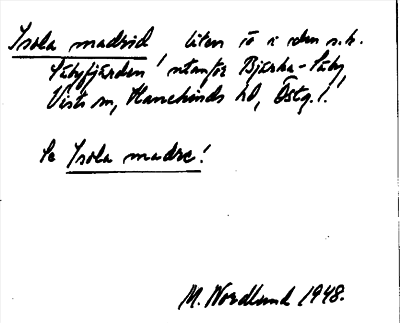 Isola madrid, liten ö i den s.k.
Säbyfjärden, utanför Bjärka-Säby,
Vists sn, Hanekinds hd, Östg.!
Se Isola madre!
M. Nordlund 1948.